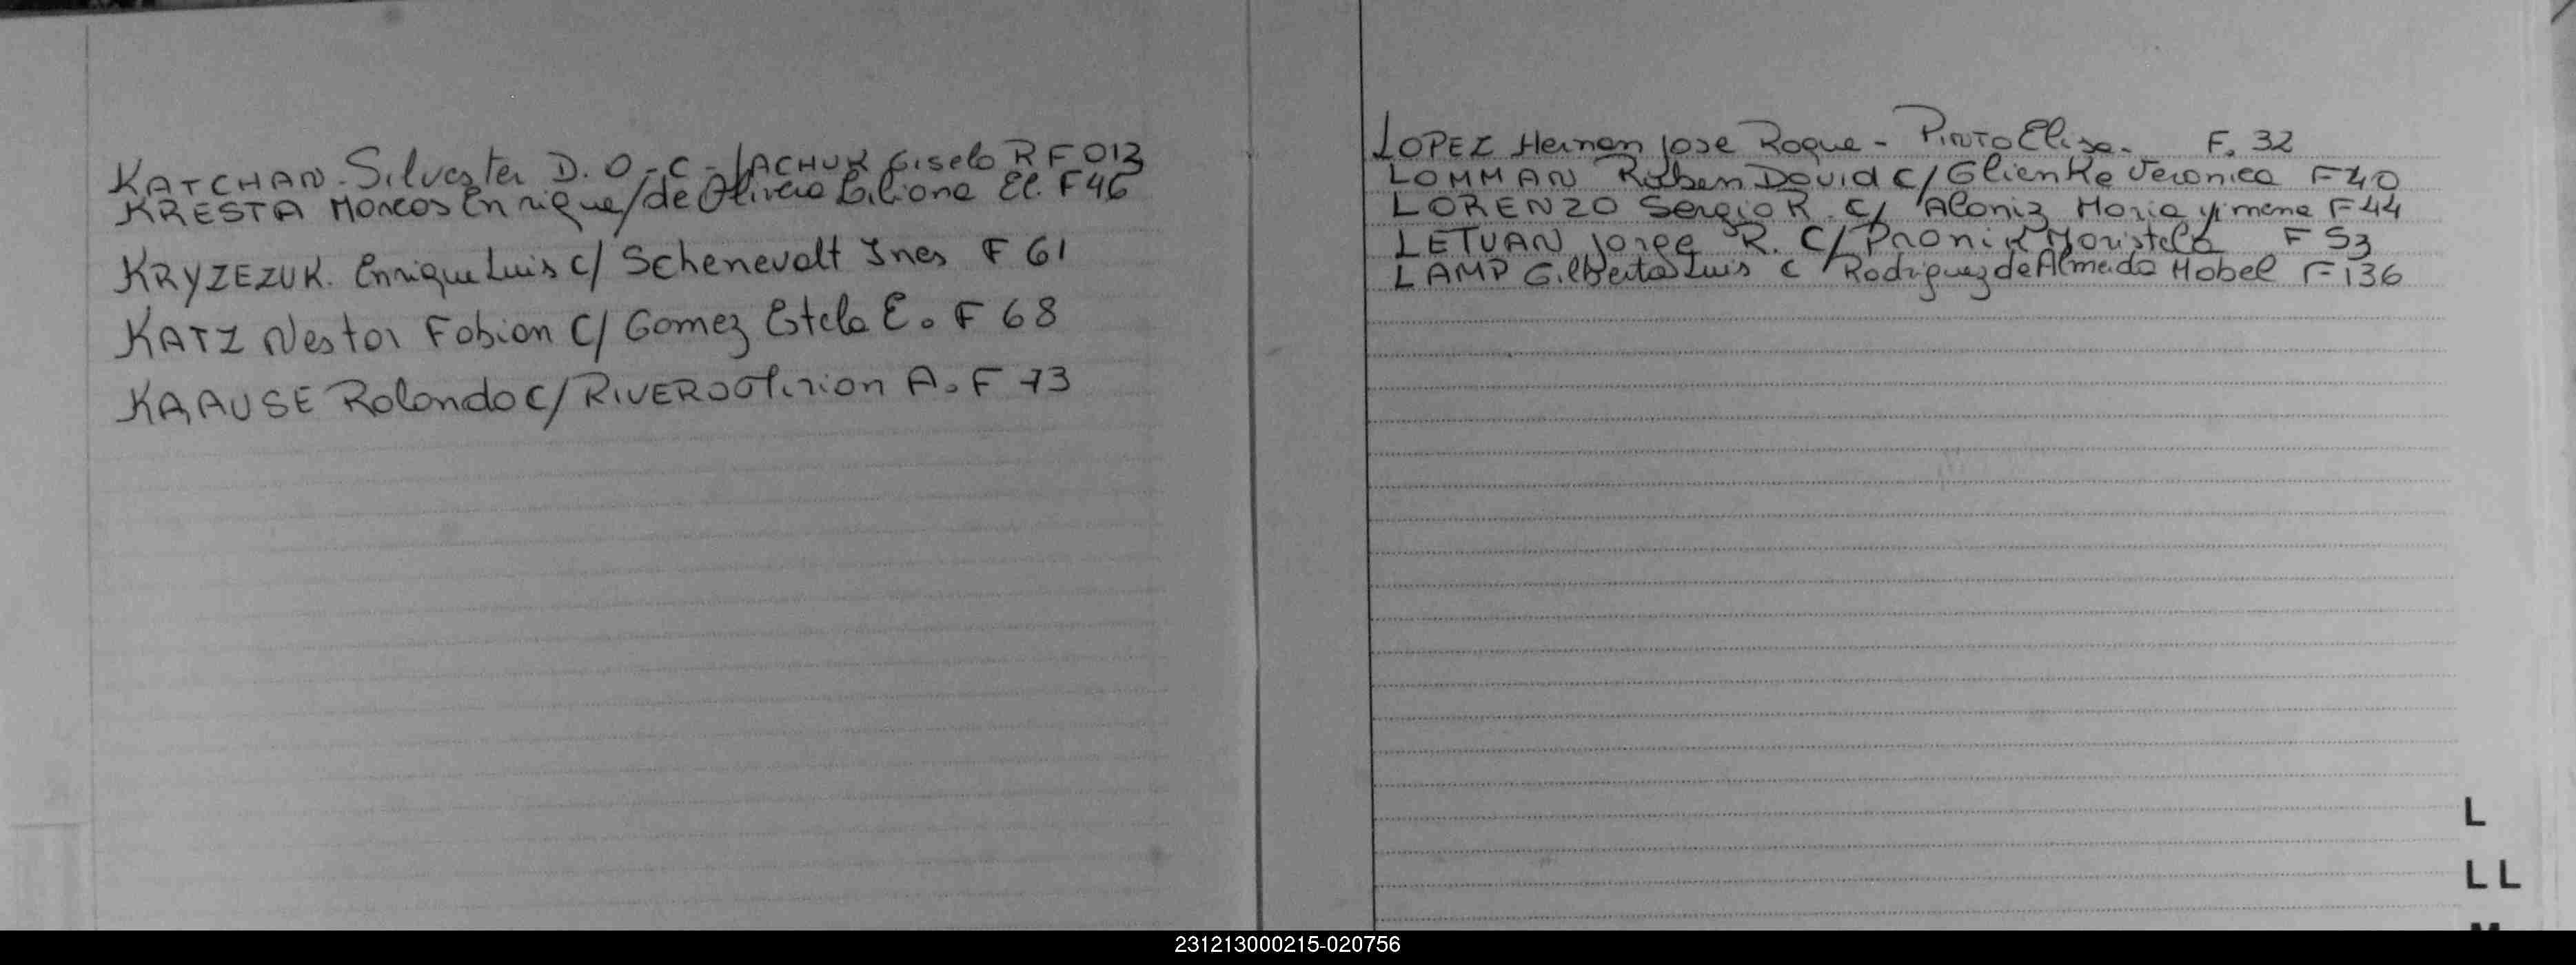 KATCHAN - Silvester D. O - C - JACHUK Gisela R F 013
KRESTA Marcos Enrique/de Olivera Liliana El. F 46
KRYZEZUK. Enrique Luis C/ Schenevalt Ines F 61
KATZ Nestor Fabian C/ Gomez Estela E. F 68
KRAUSE Rolando C/ RIVERO Mirion A. F 73
LOPEZ Hernan Jose Roque - PINTO Elisa - F. 32
LOMMAN Ruben David C/ Glienke Veronica F 40
LORENZO Sergio R. C/ Aloniz Maria yimena F 44
LETUAN Jorge R. C/ Pronik Maristela F 53
LAMP Gilberto Luis C Rodriguez de Almeida Mabel F 136
L
LL
231213000215-020756